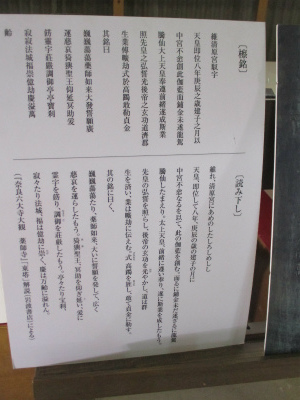 〔檫銘〕
維清原宮馭宇
天皇即位八年庚辰之歳建子之月以
中宮不悆創此伽藍而鋪金未遂龍駕
騰仙大上天皇奉遵前緒遂成斯業
照先皇之弘誓光後帝之玄功道済郡
生業傳曠劫式於高躅敢勒貞金
其銘曰
巍巍蕩蕩薬師如来大發誓願廣
運慈哀猗㺞聖王仰延冥助爰
餝靈宇荘厳調御亭亭寶刹
寂寂法城福崇億劫慶溢萬
齢
〔読み下し〕
維れ、清原宮にあめのしたしろしめしし
天皇、即位して八年、庚辰の歳の建子の月に、
中宮の不悆なるを以て、此の伽藍を創む。而るに鋪金未だ遂げざるに龍駕
騰仙したまえり。太上天皇、前緒に遵い奉り、遂に斯業を成したもう。
先皇の弘誓を照らし、後帝の玄功を光やかし、道は群
生を済い、業は曠劫に伝えむ。式て高躅を旌し、敢て貞金に勒す。
其の銘に曰く、
巍巍蕩蕩たり、薬師如来、大いに誓願を発して、広く
慈哀を運らしたもう。猗㺞聖王、冥助を仰ぎ延い、爰に
霊宇を餝り、調御を荘厳したもう。亭々たり宝刹、
寂々たり法城、福は億劫に崇く、慶は万齢に溢れん。
(『奈良六大寺大観 薬師寺』「東塔」解説〔岩波書店〕による)